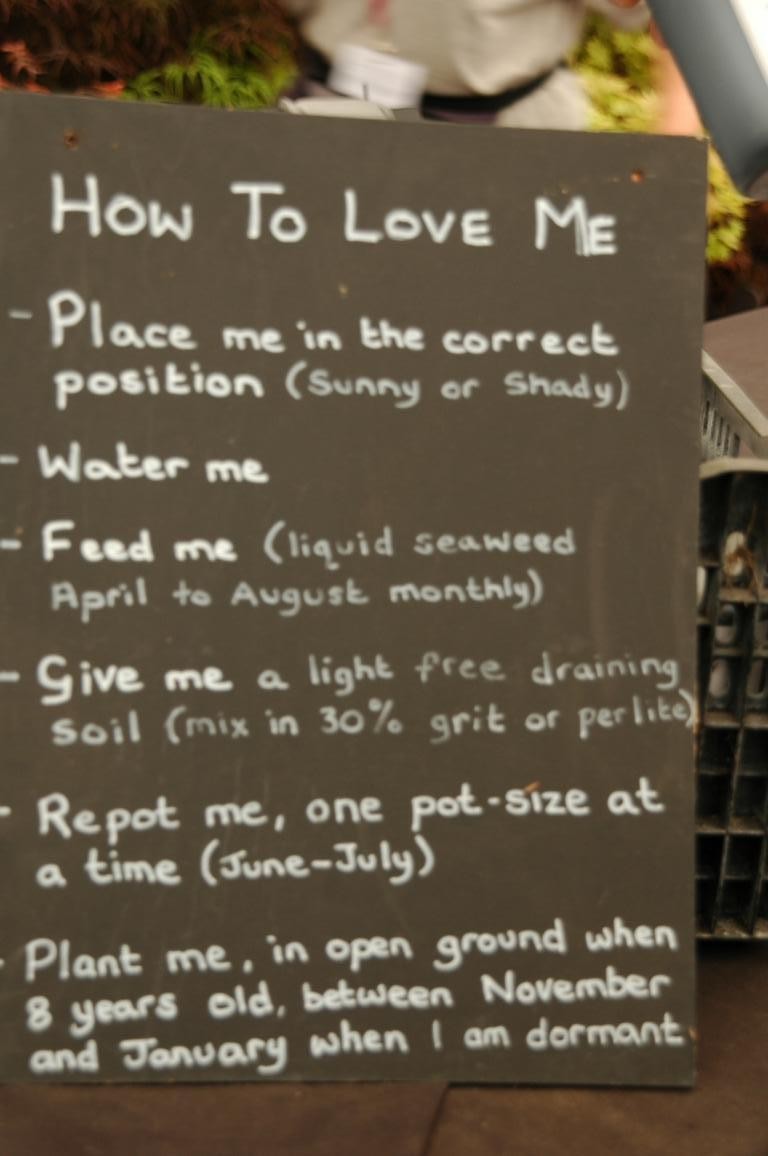 How To Love Me
- Place me in the correct
position (Sunny or Shady)
- Water me
- Feed me (liquid seaweed
April to August monthly)
- Give me a light free draining
soil (mix in 30% grit or perlite)
- Repot me, one pot-size at
a time (June-July)
- Plant me, in open ground when
8 years old, between November
and January when I am dormant